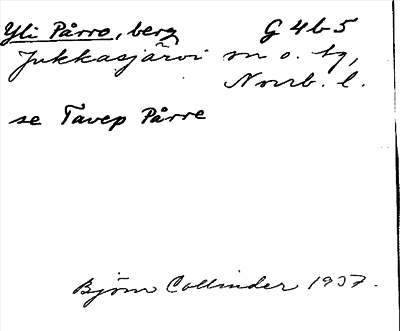 Yli Pårro, berg G 4b-5
Jukkasjärvi sn o. tg,
Norrb. l.
se Tavep Pårre
Björn Collinder 1937.